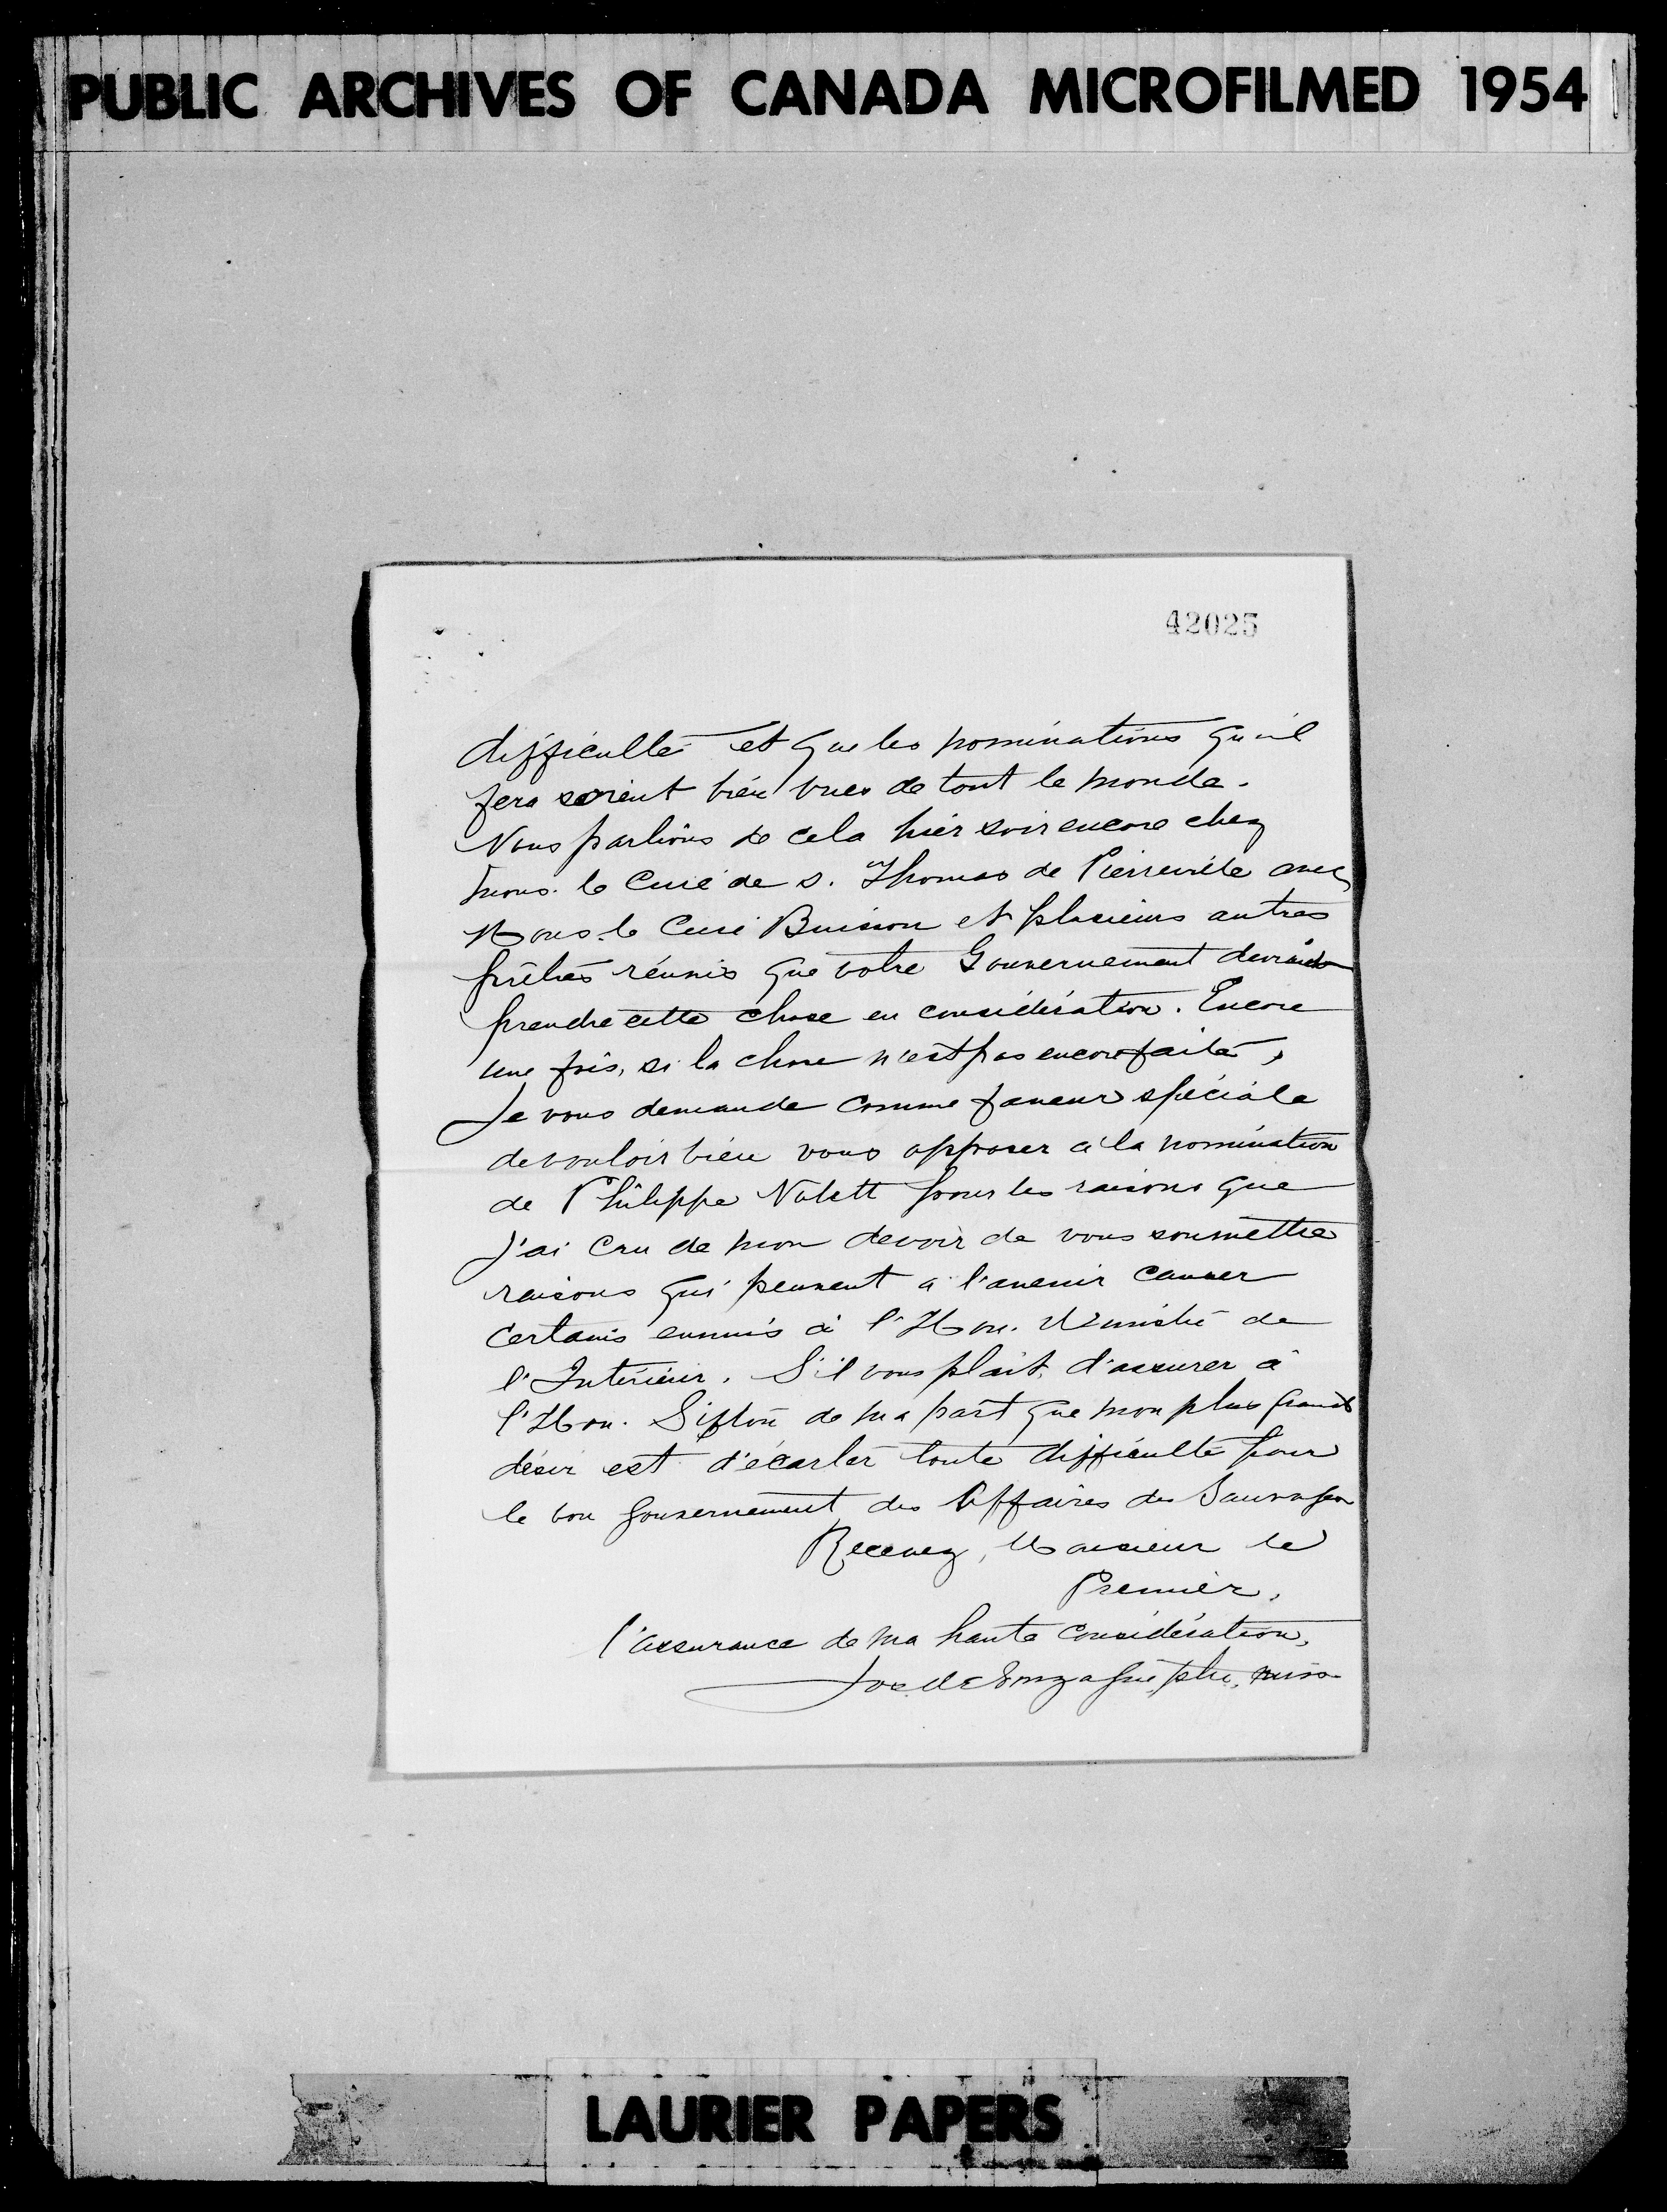 PUBLIC ARCHIVES OF CANADA MICROFILMED 1954
42025
difficulté et que les nominations qu'il
fera soient bien vues de tout le monde.
Nous parlions de cela hier soir encore chez
Mons. le Curé de S. Thomas de Pierreville avec
Mons. le Curé Buisson et plusieurs autres
prêtres réunis que votre Gouvernement devrait
prendre cette chose en considération. Encore
une fois, si la chose n'est pas encore faite,
Je vous demande comme faveur spéciale
de vouloir bien vous opposer à la nomination
de Philippe pour les raisons que
J'ai cru de mon devoir de vous soumettre
raisons qui peuvent a l'avenir causer
certains ennuis à l'Hon. Ministre de
l'Intérieur. S'il vous plait, d'assurer à
l'Hon. Sifton de ma part que mon plus grand
désir est d'écarter toute difficulté pour
le bon gouvernement des Affaires des Sauvages
Recevez, Monsieur le
Premier,
l'assurance de ma haute considération,
Jos. de Gonzague, ptre, miss
LAURIER PAPERS